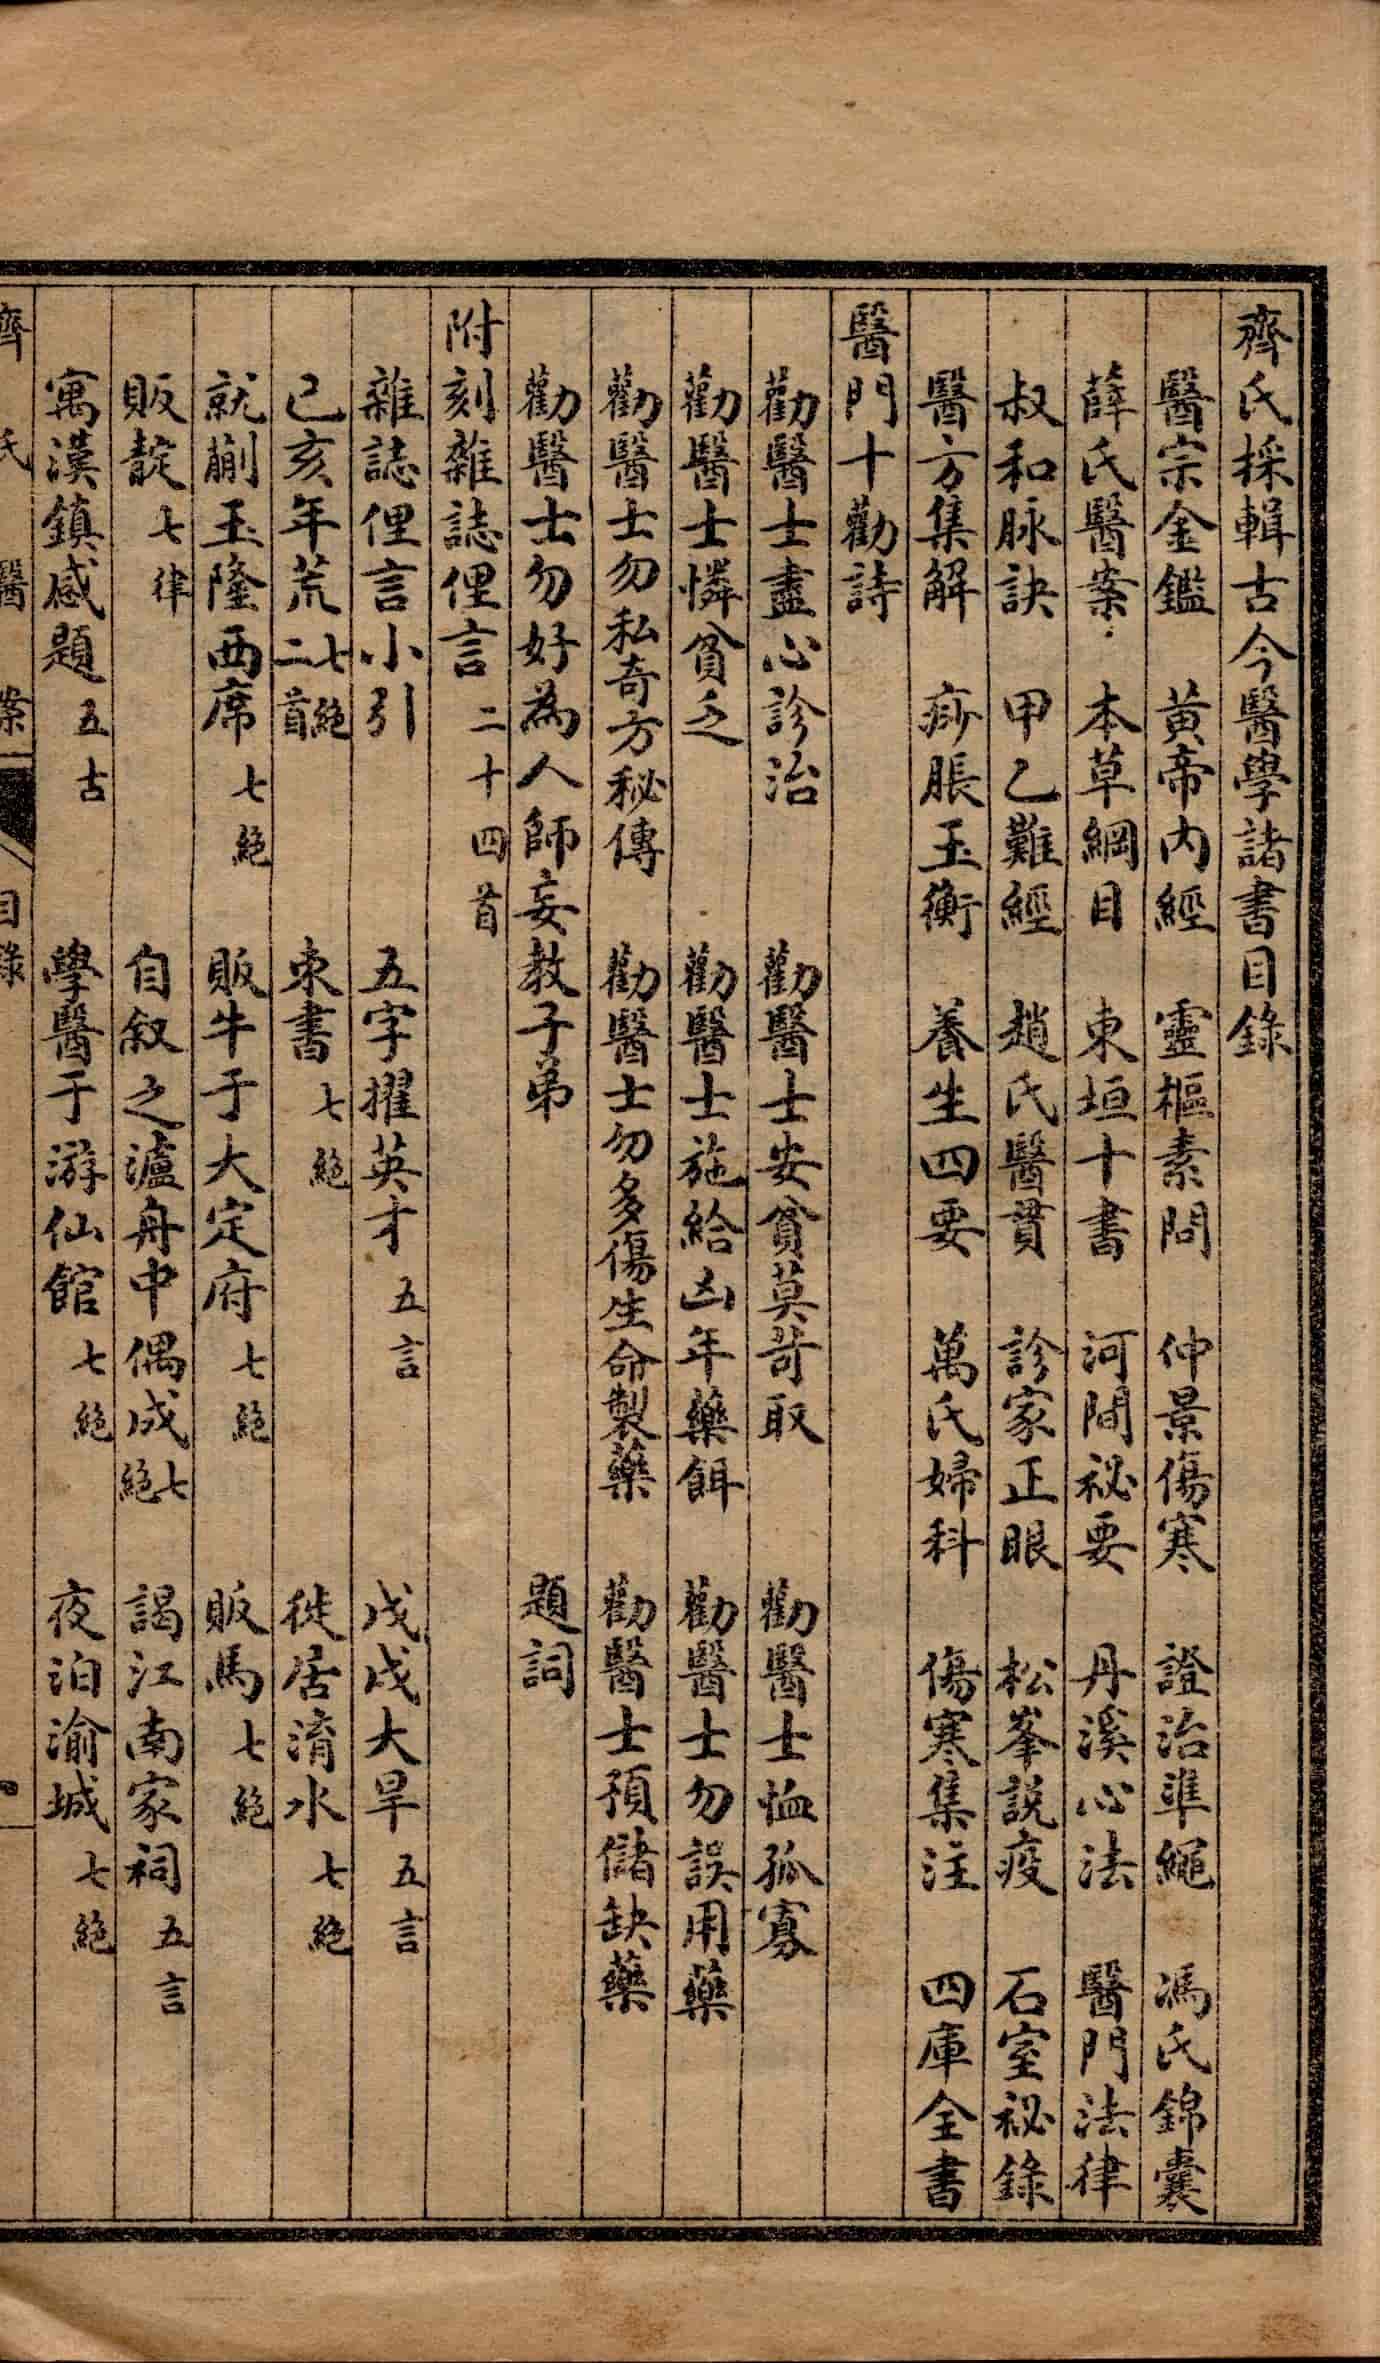 齊氏採輯古今醫學諸書目錄
醫宗金鑑　黃帝內經　靈樞素問　仲景傷寒　證治準繩　馮氏錦囊
薛氏醫案　本草綱目　東垣十書　河間祕要　丹溪心法　醫門法律
叔和脉訣　甲乙難經　趙氏醫貫　診家正眼　松峯說疫　石室祕錄
醫方集解　痧脹玉衡　養生四要　萬氏婦科　傷寒集注　四庫全書
醫門十勸詩
勸醫士盡心診治　勸醫士安貧莫苛取　勸醫士恤孤寡
勸醫士憐貧乏　勸醫士施給凶年藥餌　勸醫士勿誤用藥
勸醫士勿私奇方秘傳　勸醫士勿多傷生命製藥　勸醫士預儲缺藥
勸醫士勿好為人師妄教子弟　題詞
附刻雜誌俚言二十四首
雜誌俚言小引　五字擢英才五言　戊戌大旱五言
己亥年荒七絕二首　束書七絕　徙居淯水七絕
就蒯玉隆西席七絕　販牛于大定府七絕　販馬七絕
販靛七律　自叙之瀘舟中偶成七絕　謁江南家祠五言
寓漢鎮感題五古　學醫于游仙館七絕　夜泊渝城七絕
齊氏醫案　目錄